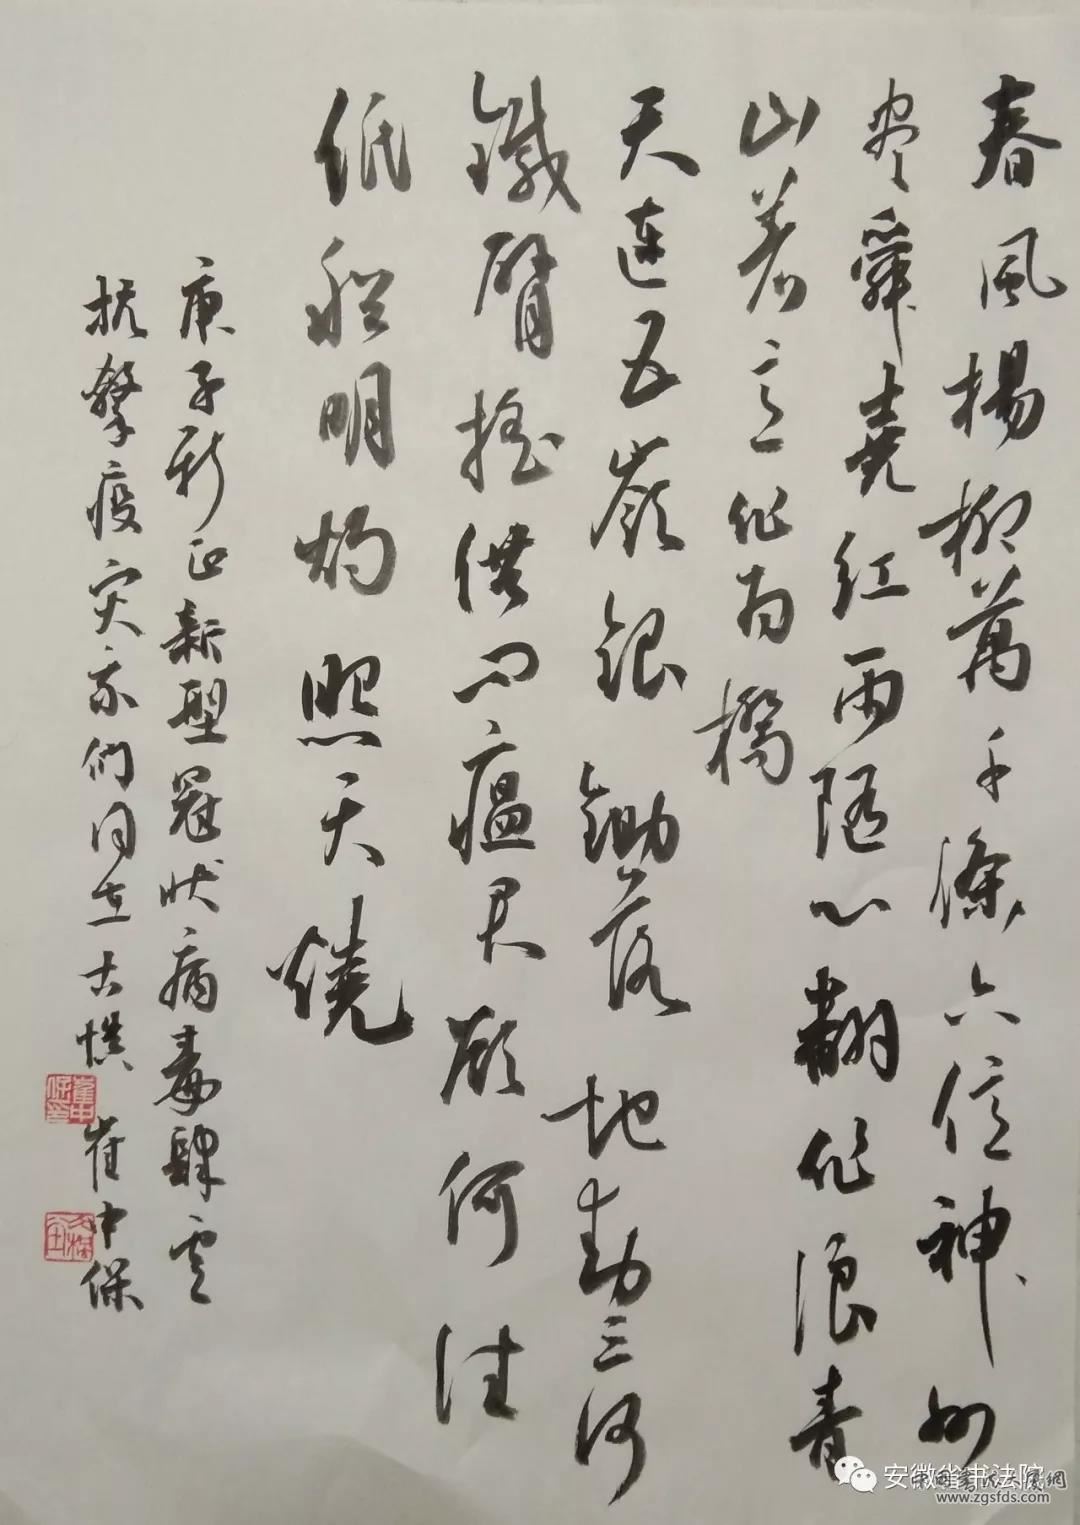 春風楊柳萬千條六億神州
尽舜堯紅雨隨心翻作浪青
山着意化为橋
天连五嶺銀鋤落地動三河
鐵臂搖借问瘟君欲何往
纸船明烛照天燒
庚子新正新型冠状病毒肆虐
抗擊疫灾我們同在 崔中保
崔中保印
安徽省书法院
www.zgsfds.com